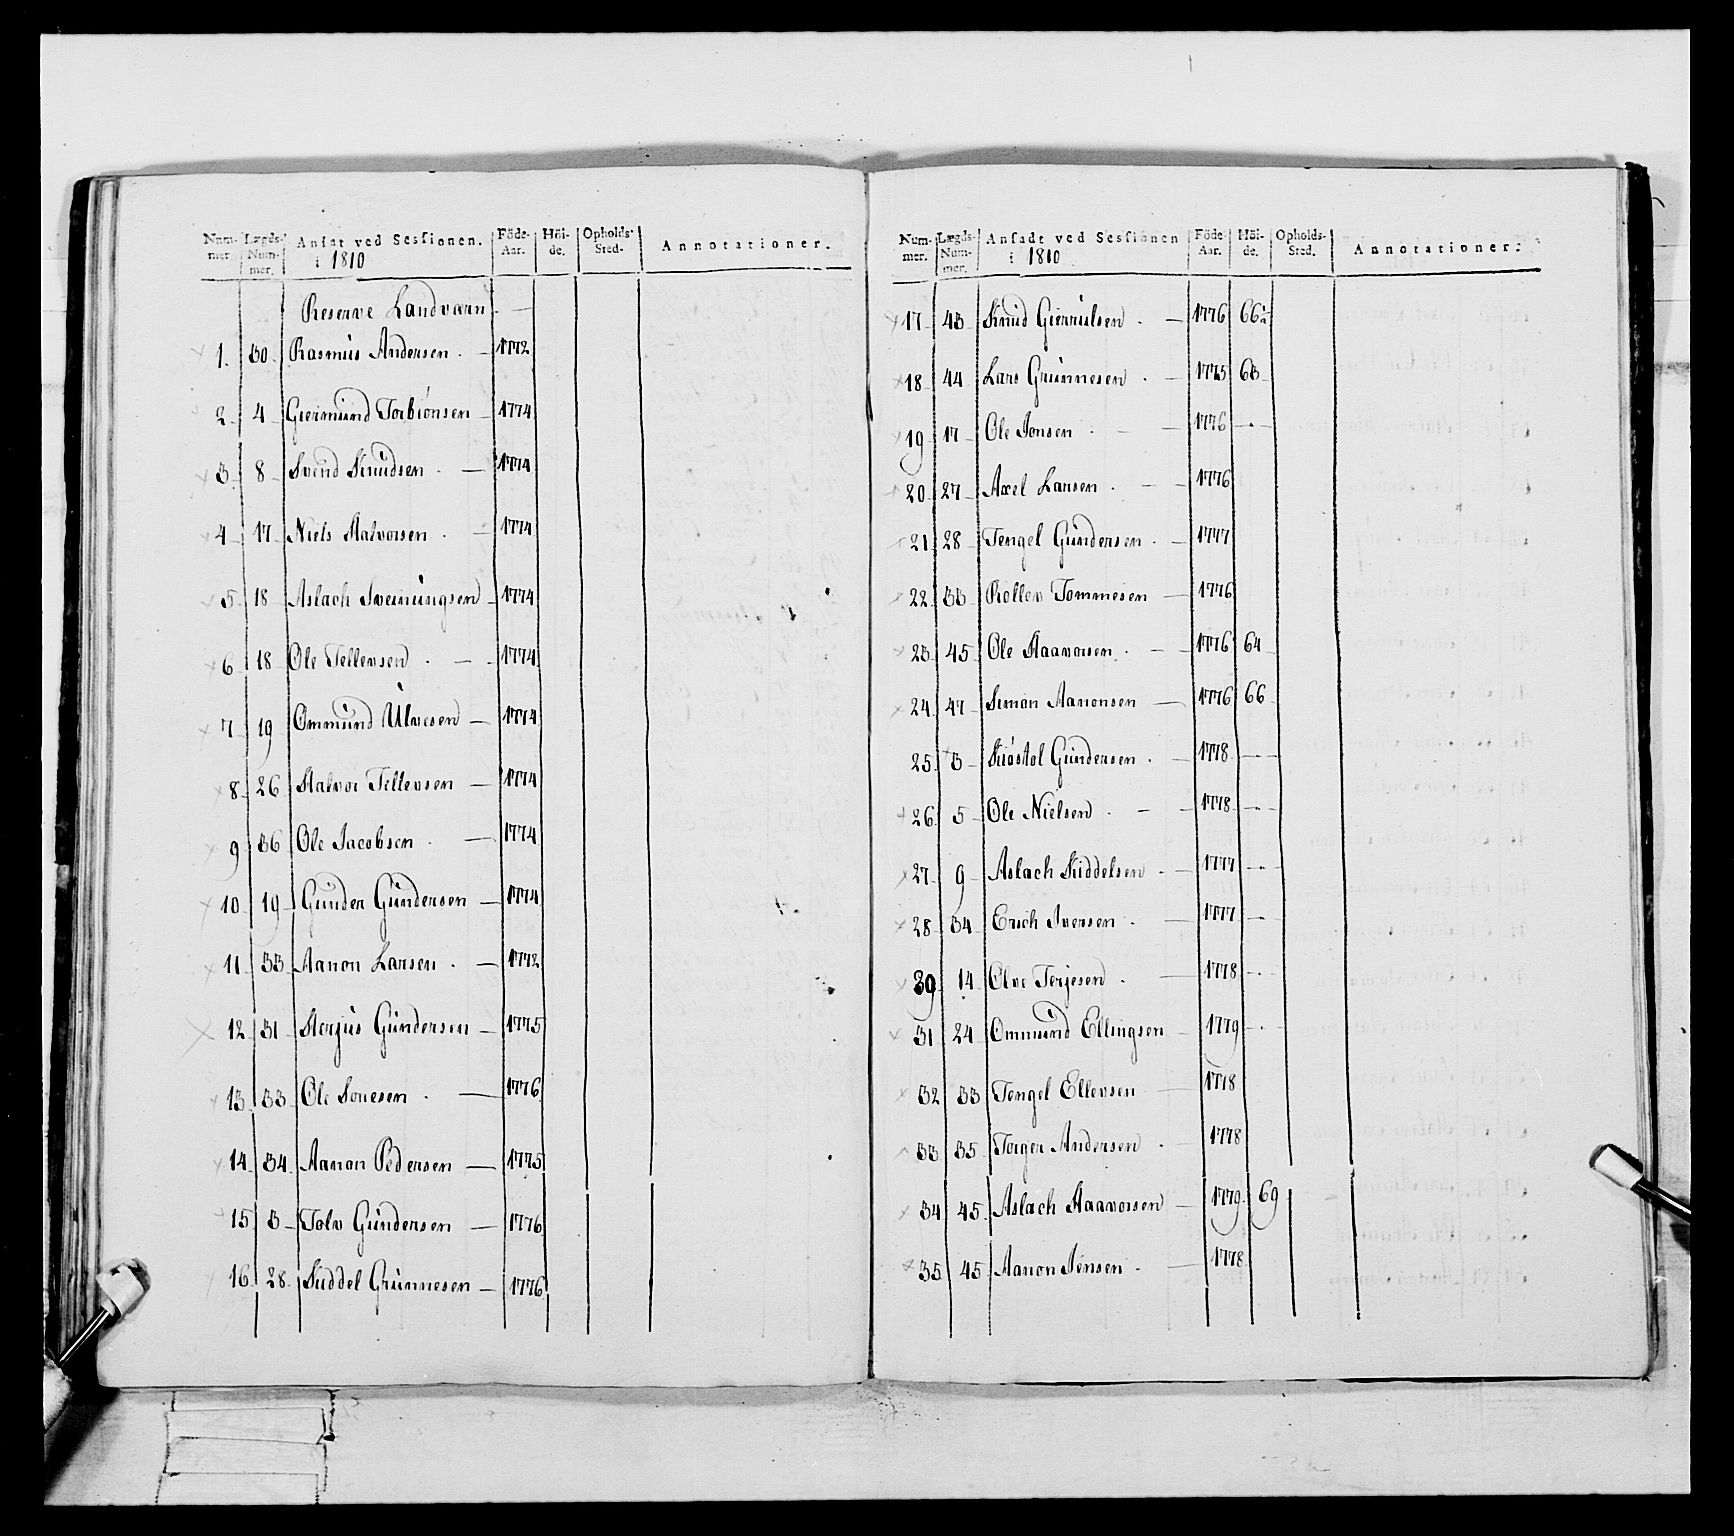 Num- Lægds- Ansat ved Sessionen. Föde- Höi- Opholds- Annotationer.
mer. Num- i 1810 Aar. de. Sted.
mer.
Reserve Landværn. —
1. 30. Rasmus Andersen . — 1772
2. 4 Giermund Torbiönsen — 1774
3. 8 Svend Knudsen . — 1774
4 17 Niels Halvorsen . — 1774
5. 18 Aslach Sveinungsen — 1774
6. 18 Ole Tellevsen . — 1774
7 19 Ommund Ulvesen — 1774
8. 26 Halvor Tellevsen — 1774
9 36 Ole Jacobsen . — 1774
10 19 Gunder Gundersen — 1774
11. 33 Aanon Larsen . — 1772
12 31 Herjus Gundersen — 1775
13. 33 Ole Sonesen . — 1776
14. 34. Aanon Pedersen — 1775
15 3 Tolv Gundersen — 1776
16. 28. Siddel Grunnesen — 1776
Num- Lægds- Ansadt ved Sessionen Föde- Höi- Opholds- Annotationer:
mer. Num- i 1810 Aar. de. Sted.
mer.
17 43 Knud Gierrulsen . — 1776 66½
18 44 Lars Grunnesen . — 1775 63
19 17 Ole Jonsen . — — 1776 — . —
20 27 Axel Larsen . — — 1776
21 28 Tengel Gundersen . — 1777
22. 33 Rollev Tommesen — 1776
23 45 Ole Haavorsen . — — 1776 64
24. 47 Simon Aanonsen — 1776 66
25. 3 Kiöstol Gundersen . — 1778 — . —
26. 5 Ole Nielsen . — — 1778 — . —
27 9 Aslach Siddelsen . — 1777 — . —
28 34 Erich Iversen . — 1777 — . —
30 14 Olve Terjesen . — 1778 — . —
31 24 Ommund Ellingsen — 1779 — . —
32 33 Tengel Ellevsen — 1778
33 35 Torger Andersen . — 1778
34 45. Aslach Haavorsen — 1779. 69
35. 45 Aanon Jensen . — 1778